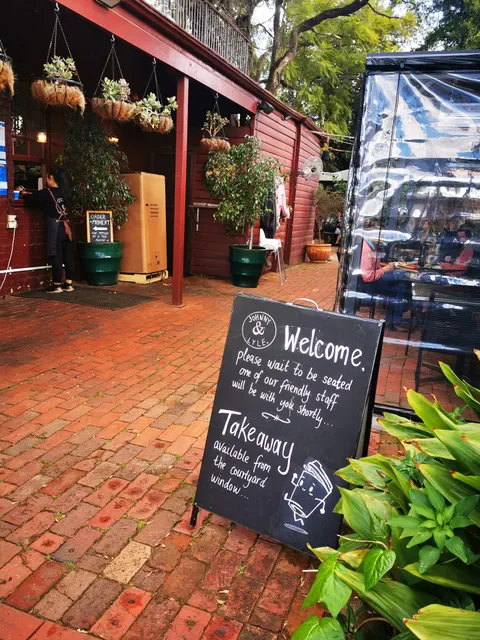 ORDER
PAYMENT
JOHNNY
&
LYLE.
Welcome.
please wait to be seated
one of our friendly staff
will be with you shortly...
Takeaway
available from
the courtyard
window...